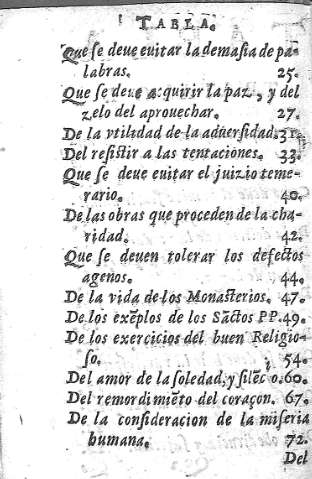 TABLA.
Que se deue euitar la demasia de pa-
labras. 25.
Que se deue acquirir la paz, y del
zelo del aprouechar. 27.
De la vtilidad de la aduersidad. 31.
Del resistir a las tentaciones. 33.
Que se deue euitar el juizio teme-
rario. 40.
De las obras que proceden de la cha-
ridad. 42.
Que se deuen tolerar los defectos
agenos. 44.
De la vida de los Monasterios. 47.
De los exẽplos de los Sãctos PP. 49.
De los exercicios del buen Religio-
so. 54.
Del amor de la soledad, y silẽcio. 60.
Del remordimiẽto del coraçon. 67.
De la consideracion de la miseria
humana. 72.
Del